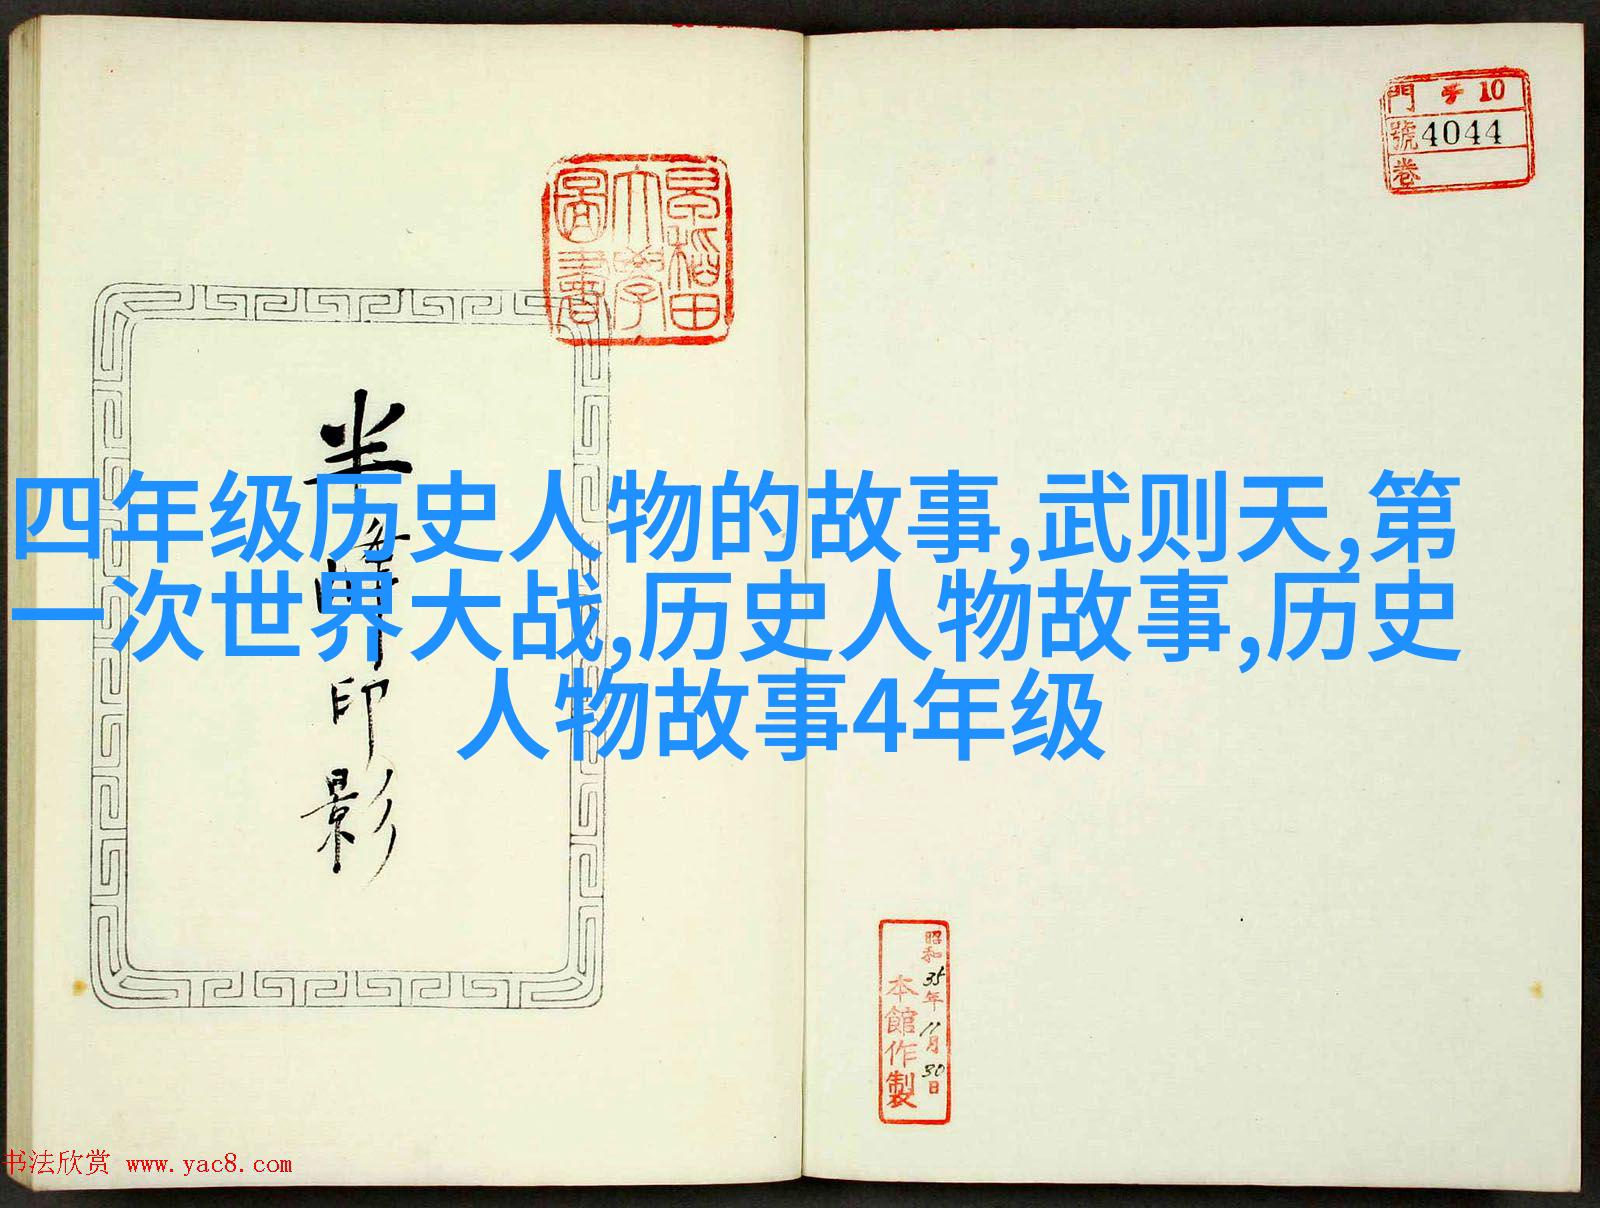 四年级历史人物的故事,武则天,第
一次世界大战,历史人物故事,历史
人物故事4年级
半峰印影
早稲田
大學
圖書
門 チ 10
號 4044
卷
昭和35年11月30日
本館作製
书法欣赏 www.yac8.com